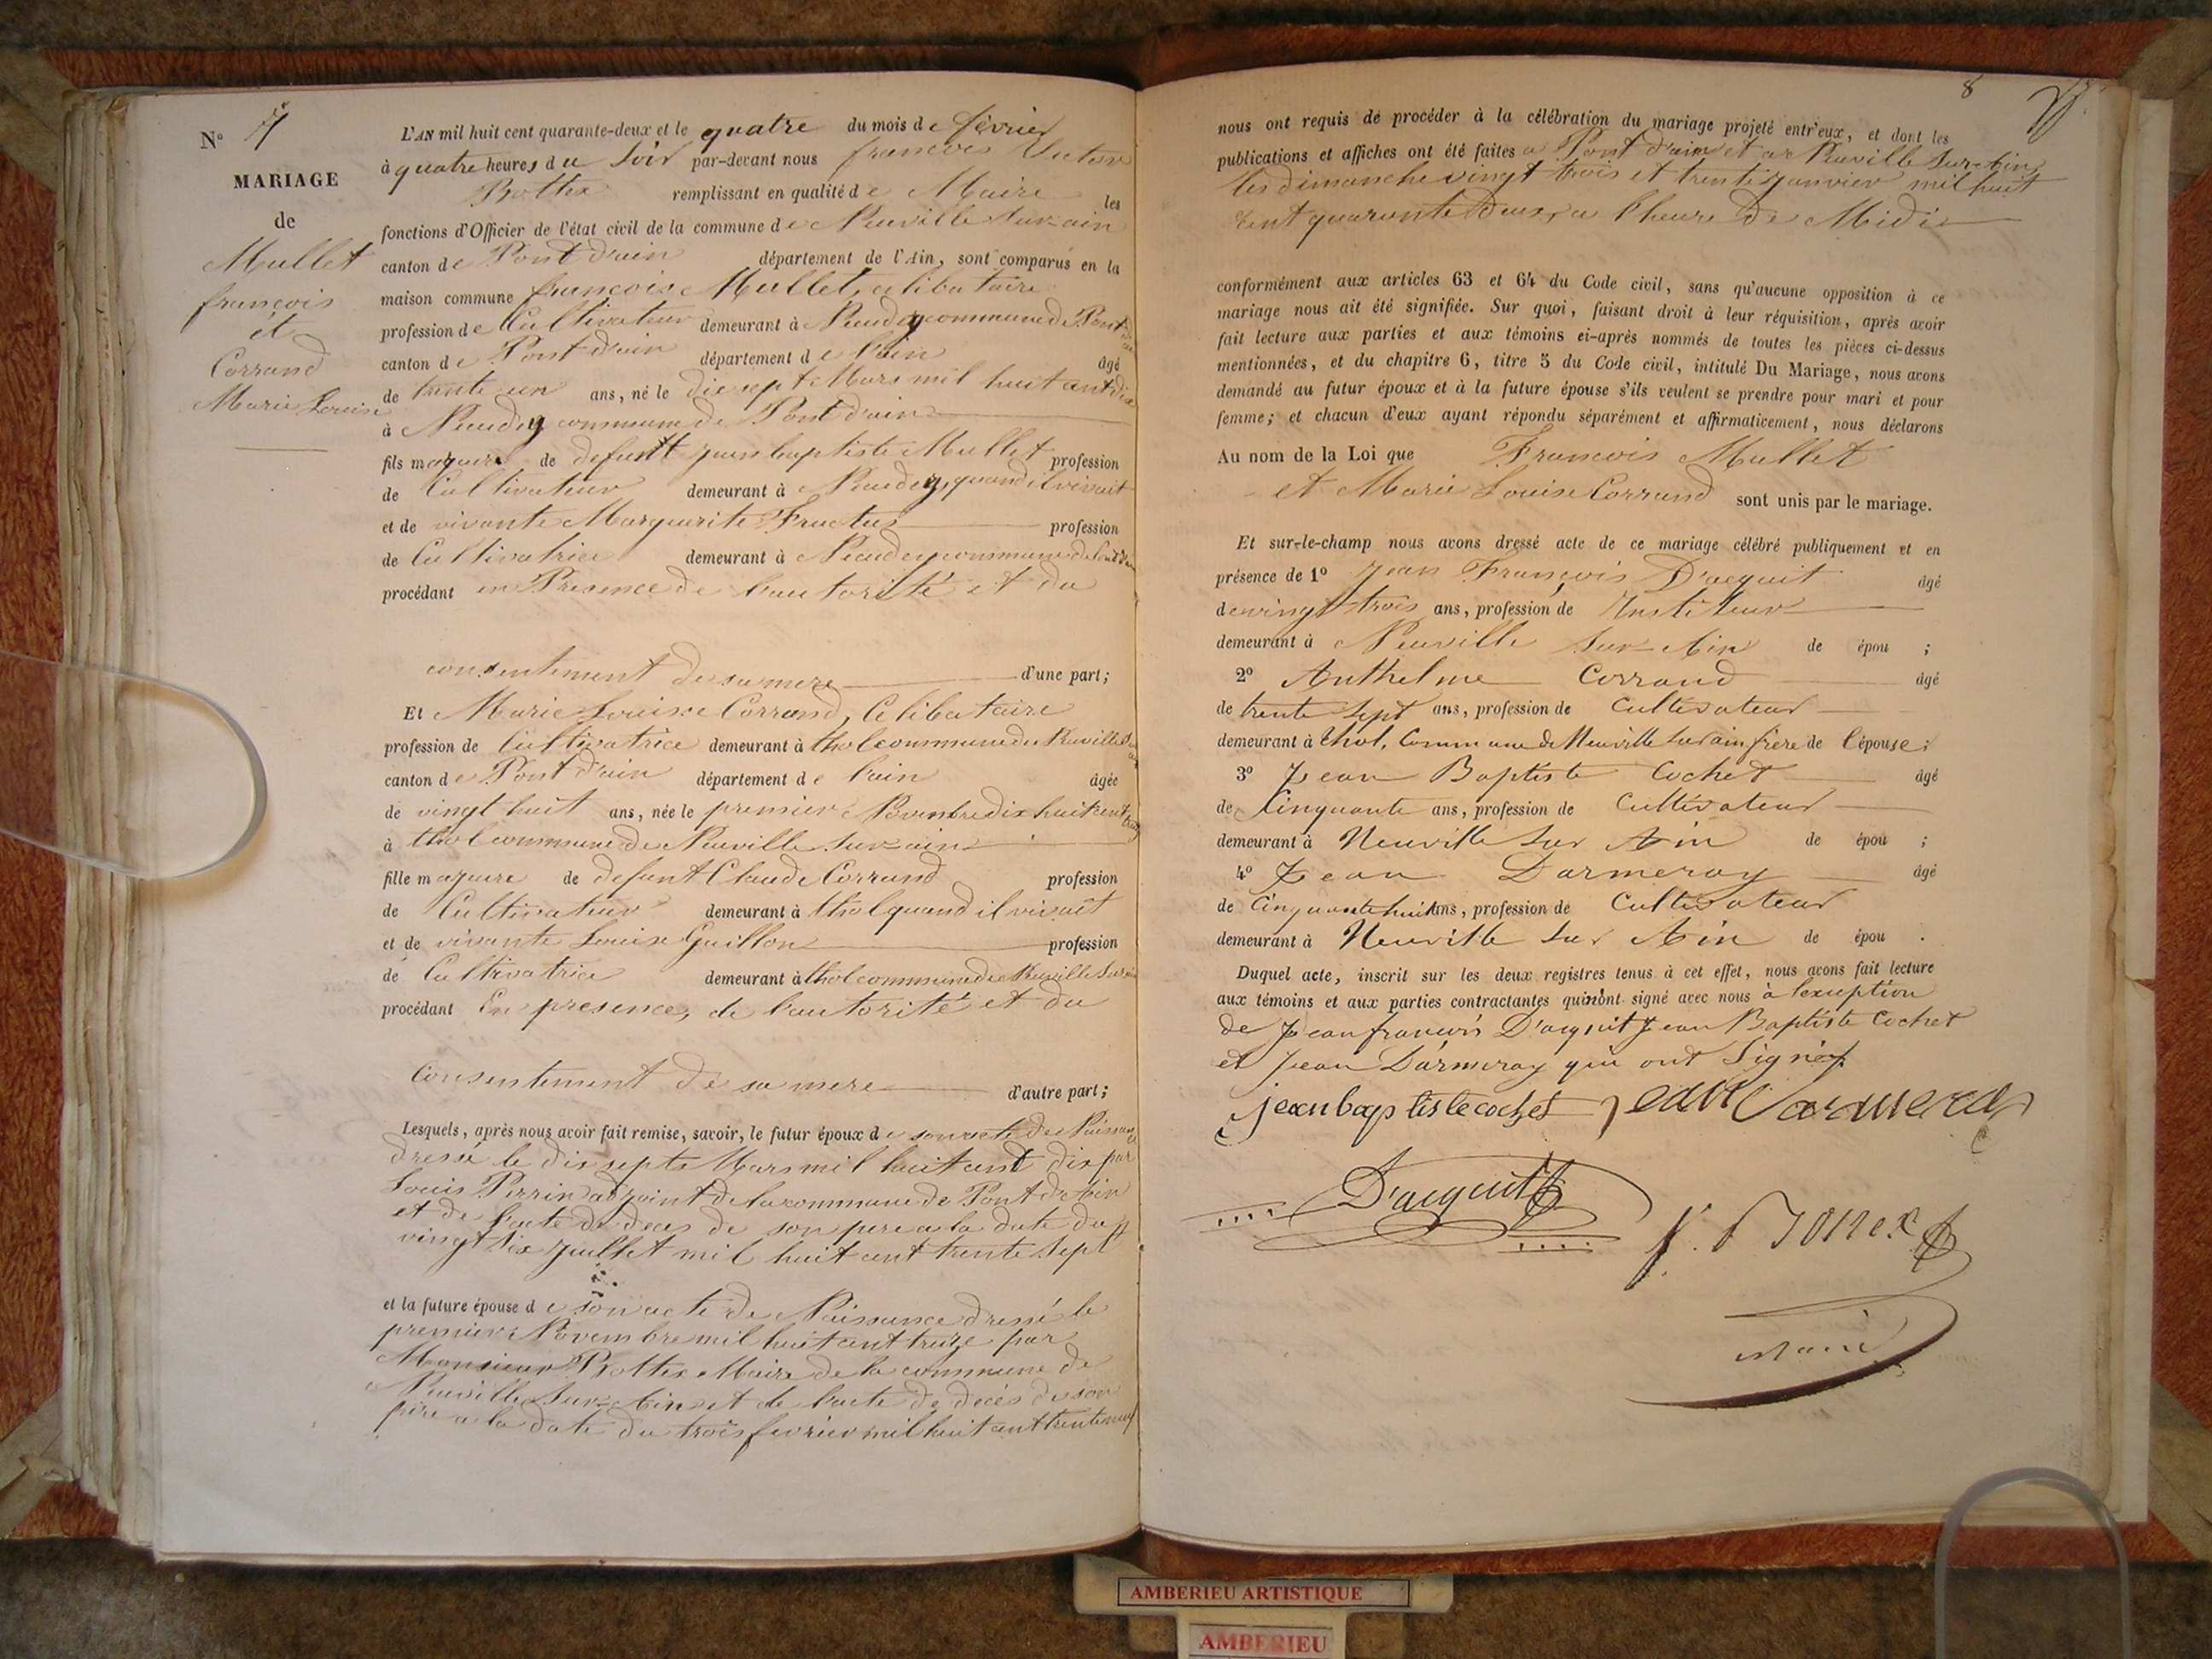 N° 7
MARIAGE
de
Mallet
françois
et
Corrand
Marie Louise
L'AN mil huit cent quarante-deux et le quatre du mois de février
à quatre heures du soir par-devant nous françois Victor
Bottex remplissant en qualité de Maire les
fonctions d'Officier de l'état civil de la commune de Neuville sur ain
canton de Pont d'ain département de l'Ain, sont comparus en la
maison commune françois Mallet, célibataire
profession de Cultivateur demeurant à Neudey commune de Pont d'ain
canton de Pont d'ain département de l'ain âgé
de trente un ans, né le dix sept Mars mil huit cent dix
à Neudey commune de Pont d'ain
fils majeure de defunt jean baptiste Mallet profession
de Cultivateur demeurant à Neudey, quand il vivait
et de vivante Marguerite Fructus profession
de Cultivatrice demeurant à Neudey commune de Pont d'ain
procédant en Presence de l'autorité et du
consentement de sa mere d'une part;
Et Marie Louise Corrand, Celibataire
profession de Cultivatrice demeurant à thol commune de Neuville Sur ain
canton de Pont d'ain département de l'ain âgée
de vingt huit ans, née le premier Novembre dix huit cent treize
à thol commune de Neuville Sur ain
fille majeure de defunt Claude Corrand profession
de Cultivateur demeurant à thol quand il vivait
et de vivante Louise Guillon profession
de Cultivatrice demeurant à thol commune de Neuville Sur ain
procédant En presence, de l'autorité et du
Consentement de sa mere d'autre part;
Lesquels, après nous avoir fait remise, savoir, le futur époux de son acte de Naissance
dressé le dix septe Mars mil huit cent dix par
Louis Perrin adjoint de la commune de Pont d'Ain
et de l'acte de deces de son pere a la date du
vingt six juillet mil huit cent trente sept
et la future épouse de son acte de Naissance dressé le
premier Novembre mil huit cent treize par
Monsieur Bottex Maire de la commune de
Neuville Sur Ain et de l'acte de décès de son
père a la date du trois fevrier mil huit cent trente neuf
8
nous ont requis de procéder à la célébration du mariage projeté entr'eux, et dont les
publications et affiches ont été faites a Pont d'ain et a Neuville Sur Ain
les dimanche vingt trois et trente janvier mil huit
cent quarante deux, a l'heure de Midi
conformément aux articles 63 et 64 du Code civil, sans qu'aucune opposition à ce
mariage nous ait été signifiée. Sur quoi, faisant droit à leur réquisition, après avoir
fait lecture aux parties et aux témoins ci-après nommés de toutes les pièces ci-dessus
mentionnées, et du chapitre 6, titre 5 du Code civil, intitulé Du Mariage, nous avons
demandé au futur époux et à la future épouse s'ils veulent se prendre pour mari et pour
femme; et chacun d'eux ayant répondu séparément et affirmativement, nous déclarons
Au nom de la Loi que François Mallet
et Marie Louise Corrand sont unis par le mariage.
Et sur-le-champ nous avons dressé acte de ce mariage célébré publiquement et en
présence de 1° Jean François D'acquit âgé
de vingt trois ans, profession de Instituteur
demeurant à Neuville Sur Ain de épou ;
2° Anthelme Corrand âgé
de trente Sept ans, profession de Cultivateur
demeurant à thol, Commune de Neuville Sur ain frère de l'épouse;
3° Jean Baptiste Cochet âgé
de Cinquante ans, profession de Cultivateur
demeurant à Neuville Sur Ain de épou ;
4° Jean Darmeray âgé
de Cinquante huit ans, profession de Cultivateur
demeurant à Neuville Sur Ain de épou .
Duquel acte, inscrit sur les deux registres tenus à cet effet, nous avons fait lecture
aux témoins et aux parties contractantes qui n'ont signé avec nous à l'exception
de Jean françois D'acquit Jean Baptiste Cochet
et Jean Darmeray qui ont Signé
jean baptiste cochet jean Darmeray
D'acquit
f. V Bottex
Maire
AMBERIEU ARTISTIQUE
AMBERIEU